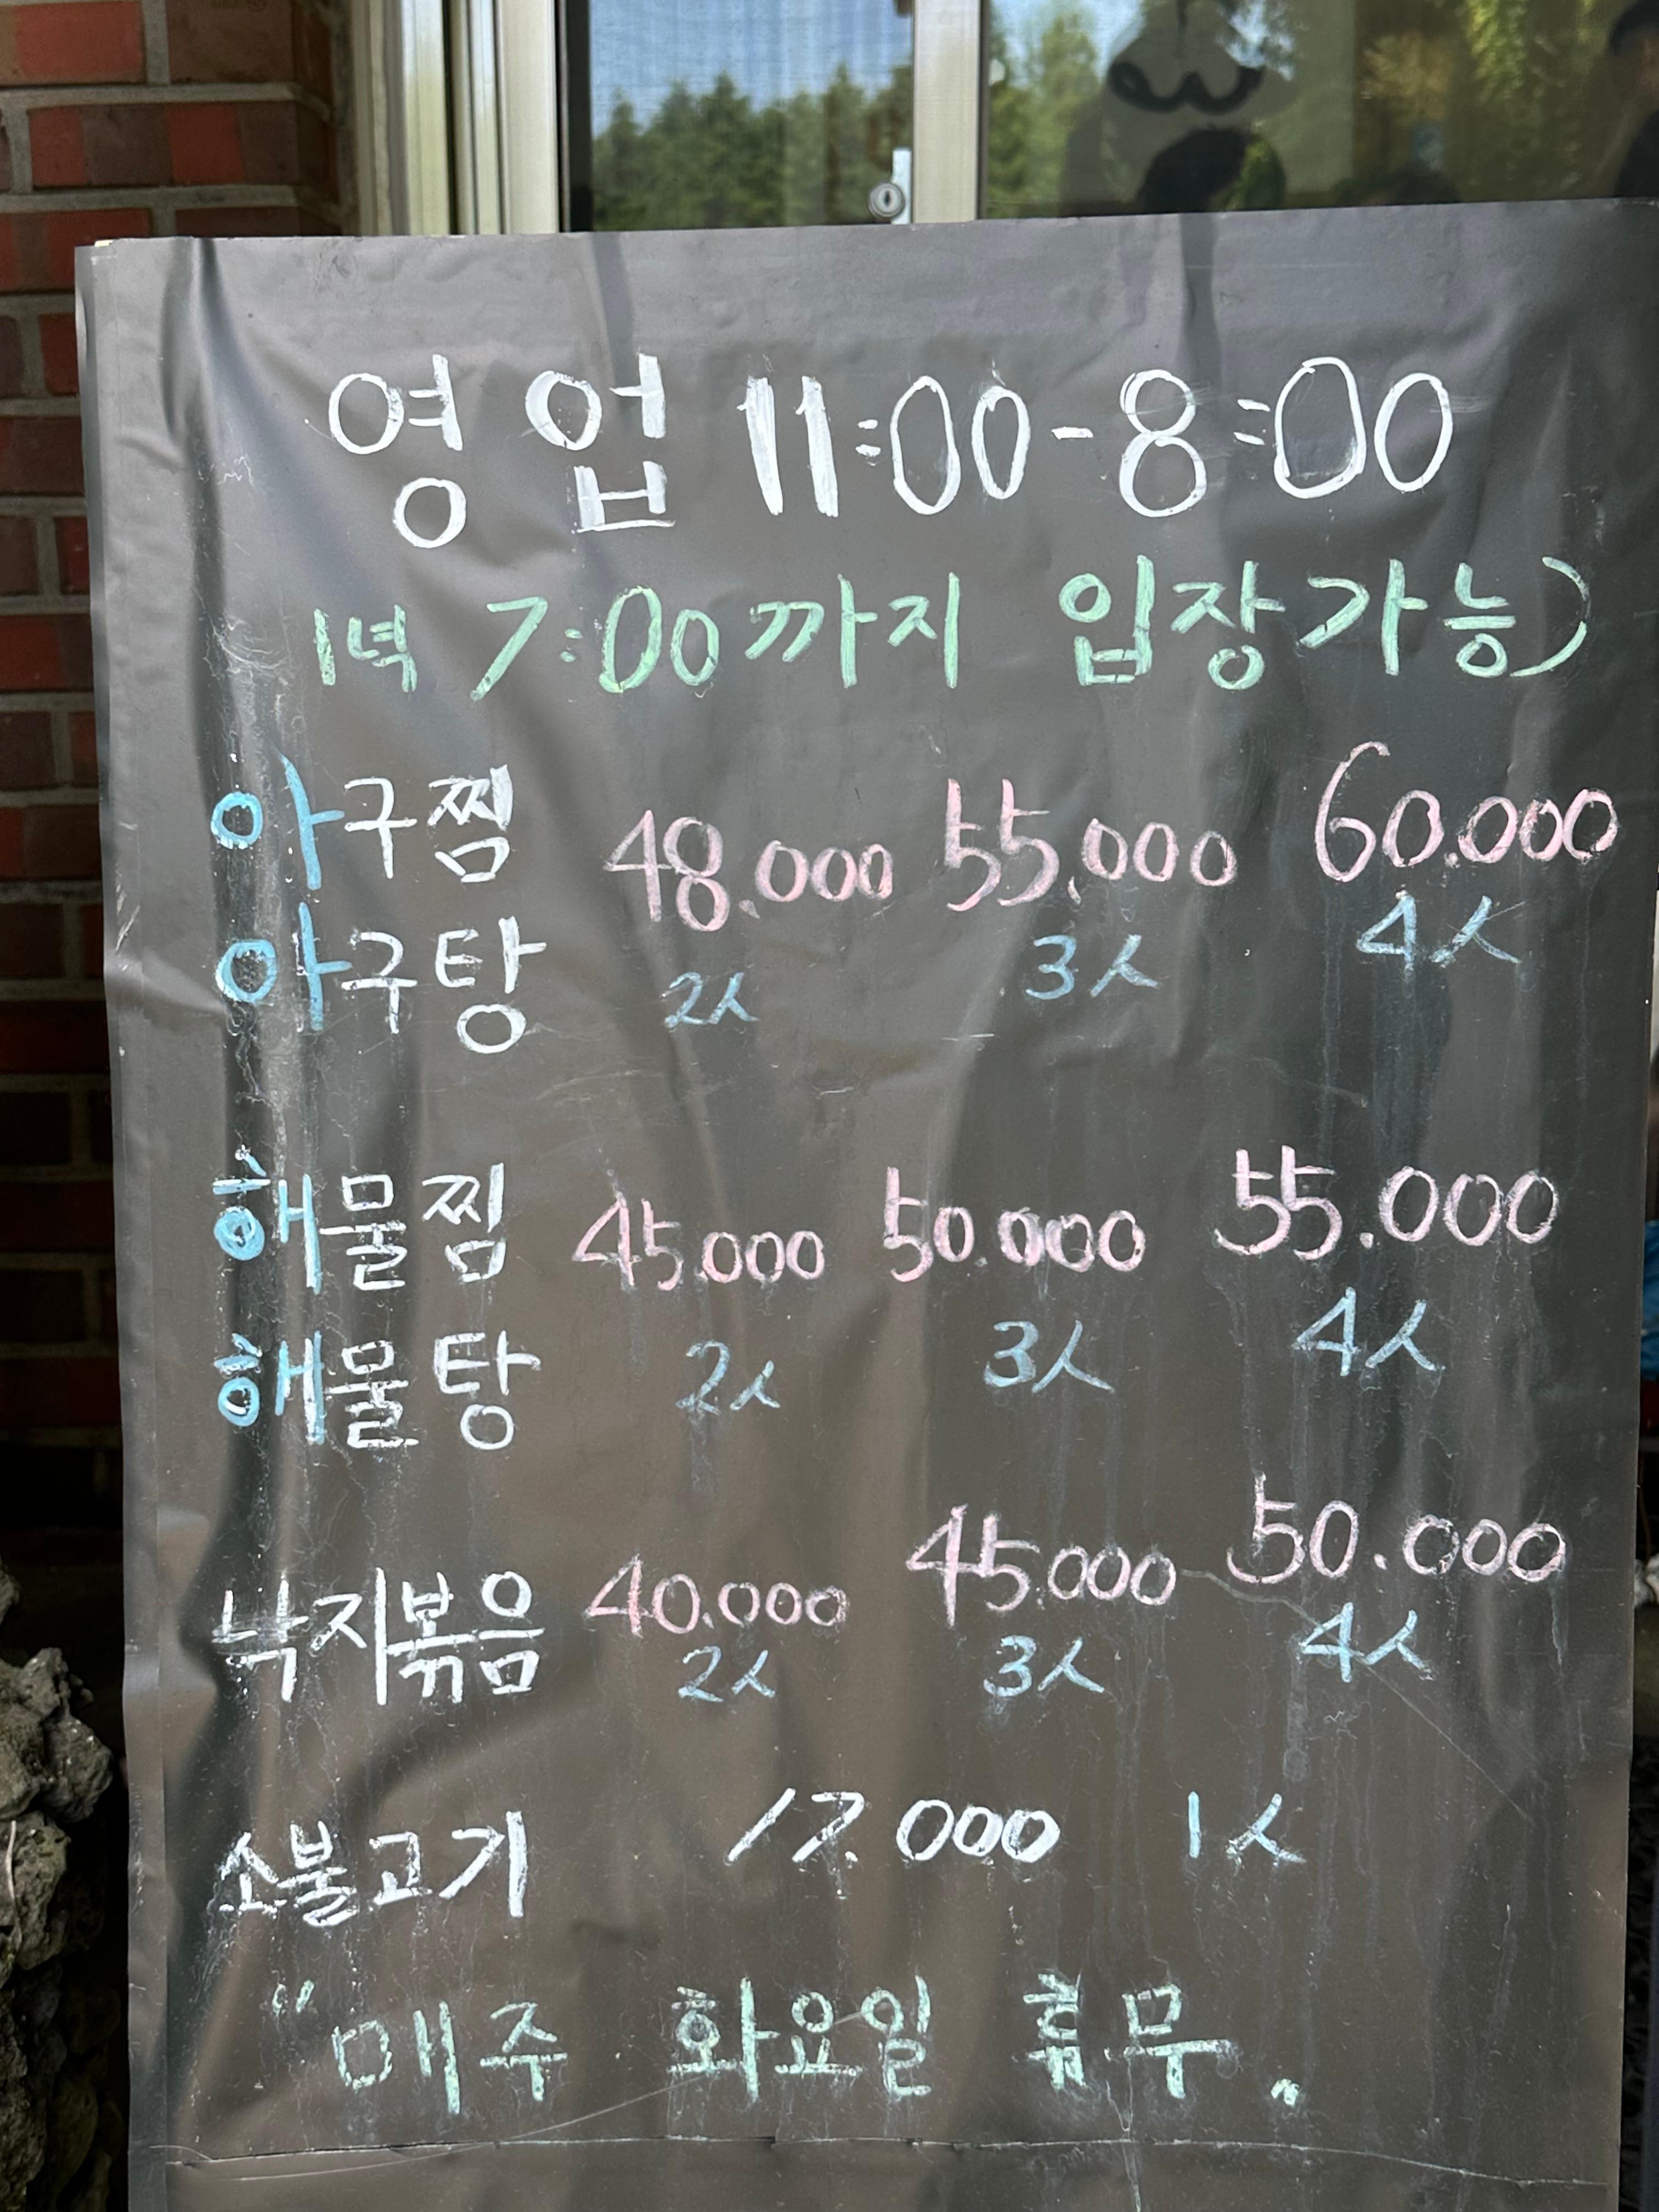 영업 11:00-8:00
녁 7:00까지 입장가능)
아구찜 48.000 55.000 60.000
아구탕 2人 3人 4人
해물찜 45.000 50.000 55.000
해물탕 2人 3人 4人
낙지볶음 40.000 45.000 50.000
2人 3人 4人
소불고기 17.000 1人
"매주 화요일 휴무.